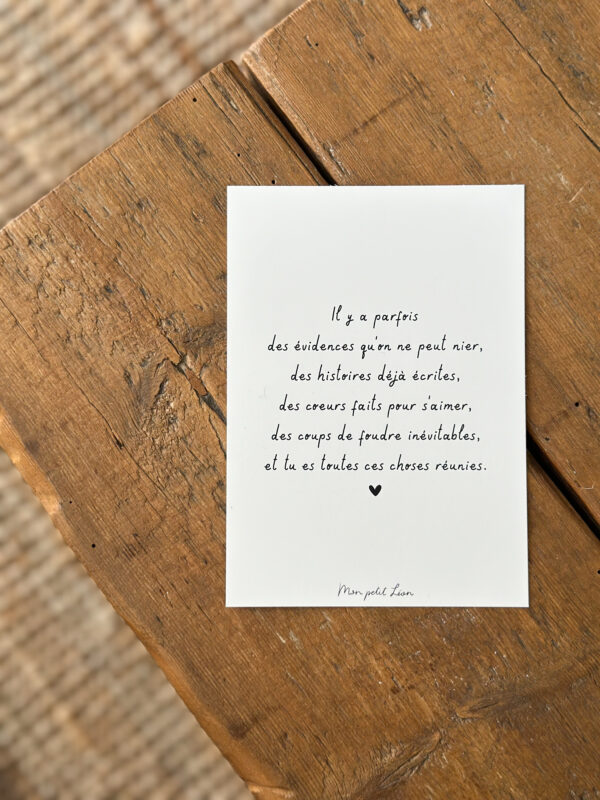 Il y a parfois
des évidences qu'on ne peut nier,
des histoires déjà écrites,
des coeurs faits pour s'aimer,
des coups de foudre inévitables,
et tu es toutes ces choses réunies.
Mon petit Lion